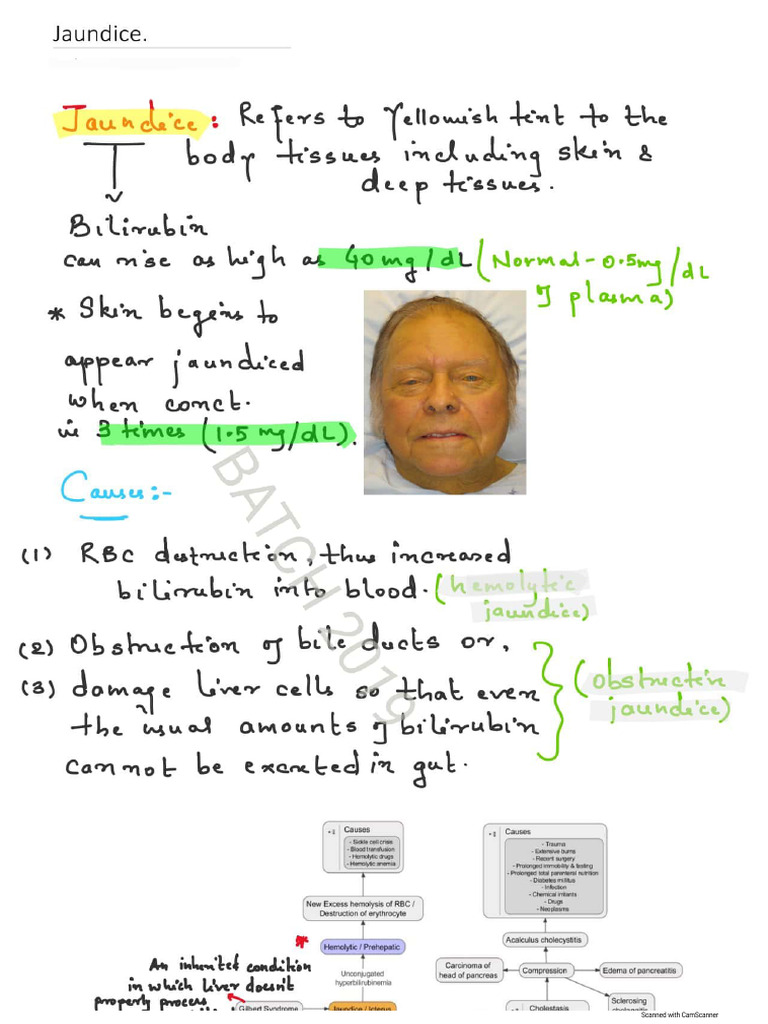 Jaundice.
Jaundice: Refers to Yellowish tint to the
body tissues including skin &
deep tissues.
Bilirubin
can rise as high as 40mg/dL (Normal - 0.5mg/dL
of plasma)
* Skin begins to
appear jaundiced
when conct.
is 3 times (1.5 mg/dL).
Causes:-
(1) RBC destruction, thus increased
bilirubin into blood. (hemolytic
jaundice)
(2) Obstruction of bile ducts or,
(3) damage liver cells so that even
the usual amounts of bilirubin
cannot be excreted in gut.
(obstructive
jaundice)
BATCH 2019
Causes
- Sickle cell crisis
- Blood transfusion
- Hemolytic drugs
- Hemolytic anemia
New Excess hemolysis of RBC /
Destruction of erythrocyte
* Hemolytic / Prehepatic
Unconjugated
hyperbilirubinemia
An inherited condition
in which liver doesn't
properly process
Gilbert Syndrome
Jaundice / Icterus
Causes
- Trauma
- Extensive burns
- Recent surgery
- Prolonged immobility & fasting
- Prolonged total parenteral nutrition
- Diabetes mellitus
- Infection
- Chemical irritants
- Drugs
- Neoplasms
Acalculus cholecystitis
Carcinoma of
head of pancreas
Compression
Edema of pancreatitis
Cholestasis
Sclerosing
cholangitis
Scanned with CamScanner